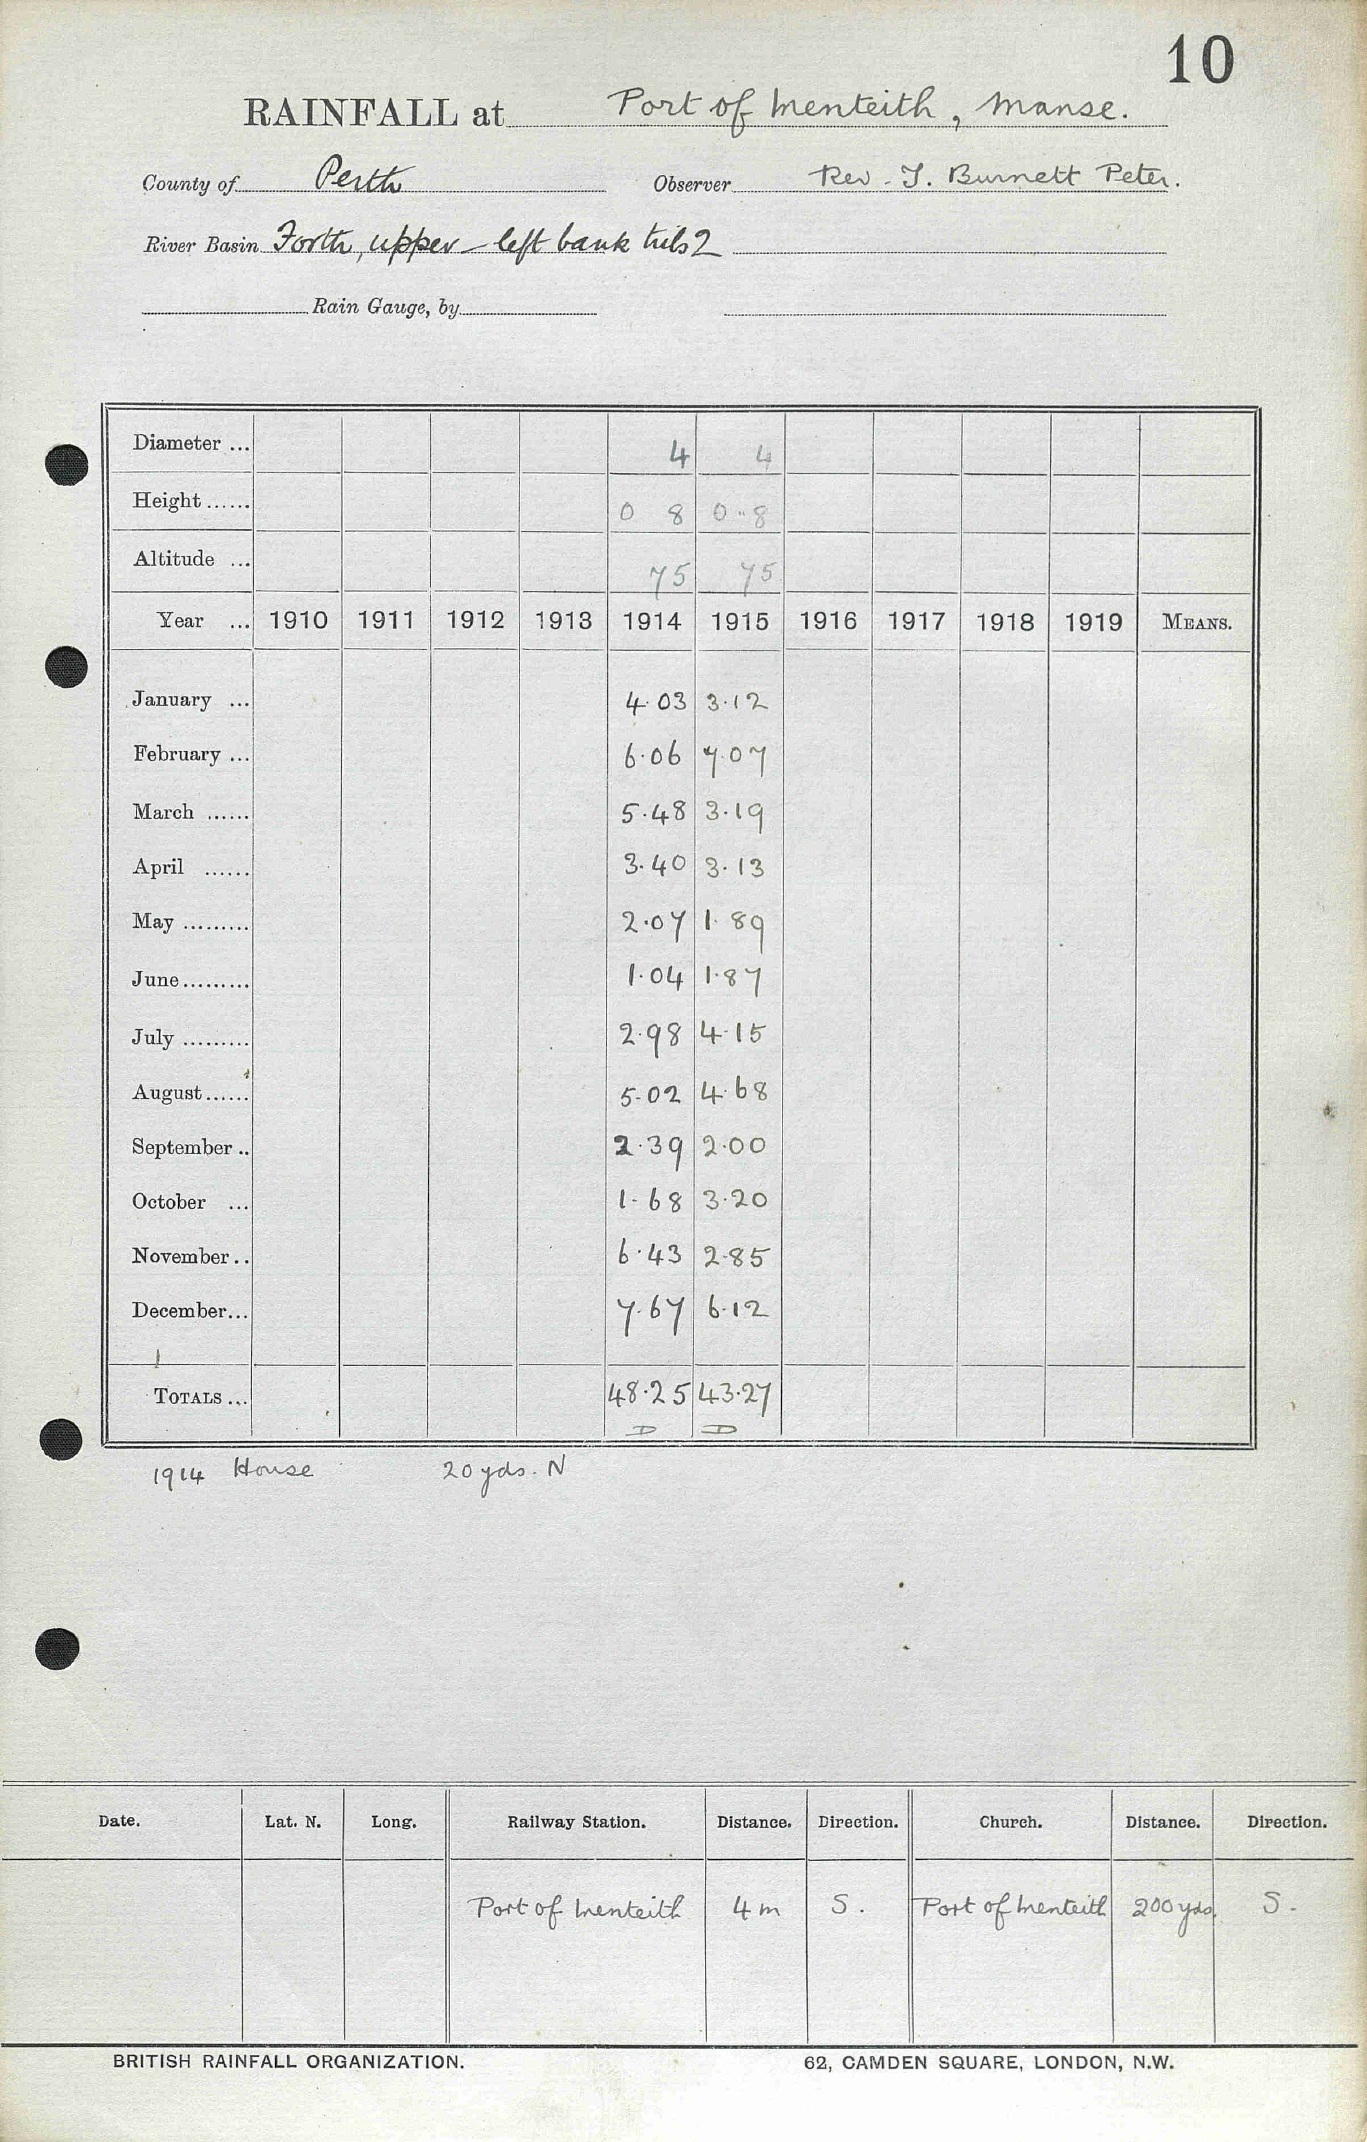 10
RAINFALL at Port of Menteith, Manse.
County of Perth Observer Rev. T. Burnett Peter.
River Basin Forth, upper - left bank tribs 2
Rain Gauge, by
Diameter ... 4 4
Height ...... 0 8 0 .. 8
Altitude ... 75 75
Year ... 1910 1911 1912 1913 1914 1915 1916 1917 1918 1919 MEANS.
January ... 4.03 3.12
February ... 6.06 7.07
March ...... 5.48 3.19
April ...... 3.40 3.13
May ......... 2.07 1.89
June ......... 1.04 1.87
July ......... 2.98 4.15
August ...... 5.02 4.68
September .. 2.39 2.00
October ... 1.68 3.20
November .. 6.43 2.85
December ... 7.67 6.12
TOTALS ... 48.25 43.27
D D
1914 House 20 yds. N
Date. Lat. N. Long. Railway Station. Distance. Direction. Church. Distance. Direction.
Port of Menteith 4 m S. Port of Menteith 200 yds. S.
BRITISH RAINFALL ORGANIZATION. 62, CAMDEN SQUARE, LONDON, N.W.